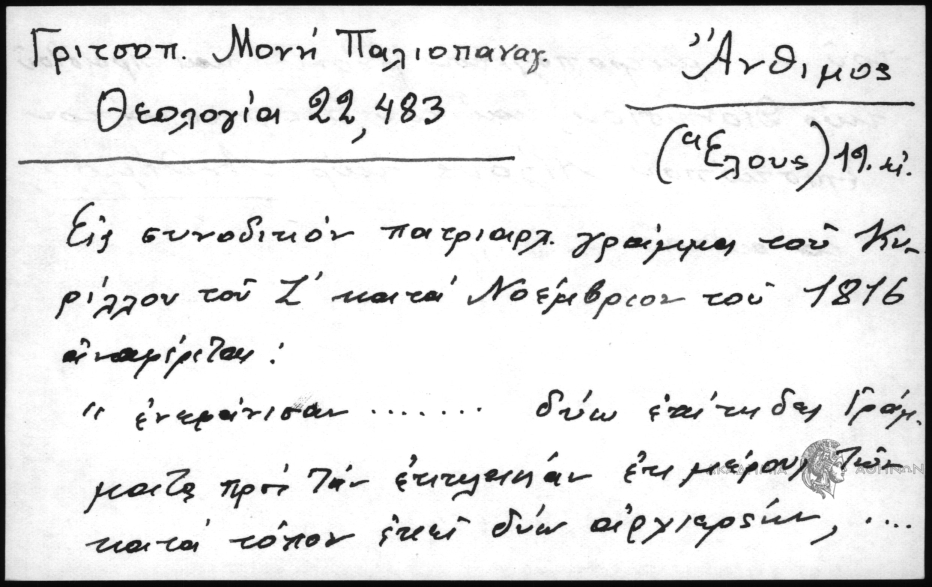 Γριτσοπ. Μονή Παλιοπαναγ.
Θεολογία 22, 483
Ἄνθιμος
(Ἕλους) 19. αἰ.
Εἰς συνοδικόν πατριαρχ. γράμμα τοῦ Κυ-
ρίλλου τοῦ Ζ' κατά Νοέμβριον τοῦ 1816
ἀναφέρεται:
"ἐνεφάνισαν ....... δύω ἐπίτηδες Γράμ-
ματα πρός τήν ἐκκλησίαν ἐκ μέρους τῶν
κατά τόπον ἐκεῖ δύω ἀρχιερέων, ....